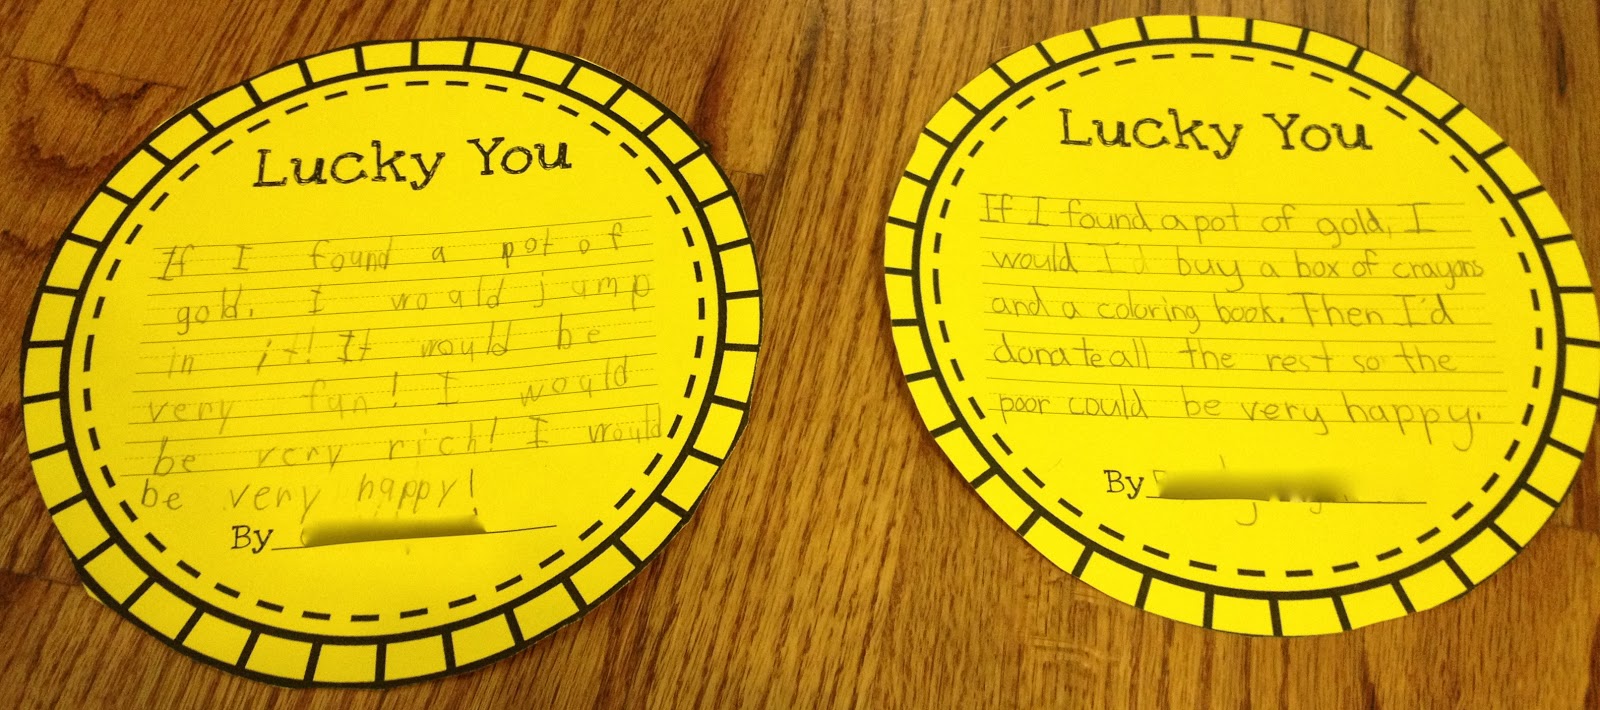 Lucky You
If I found a pot of
gold, I would jump
in it! It would be
very fun! I would
be very rich! I would
be very happy!
By
Lucky You
If I found a pot of gold, I
would I'd buy a box of crayons
and a coloring book. Then I'd
donate all the rest so the
poor could be very happy.
By